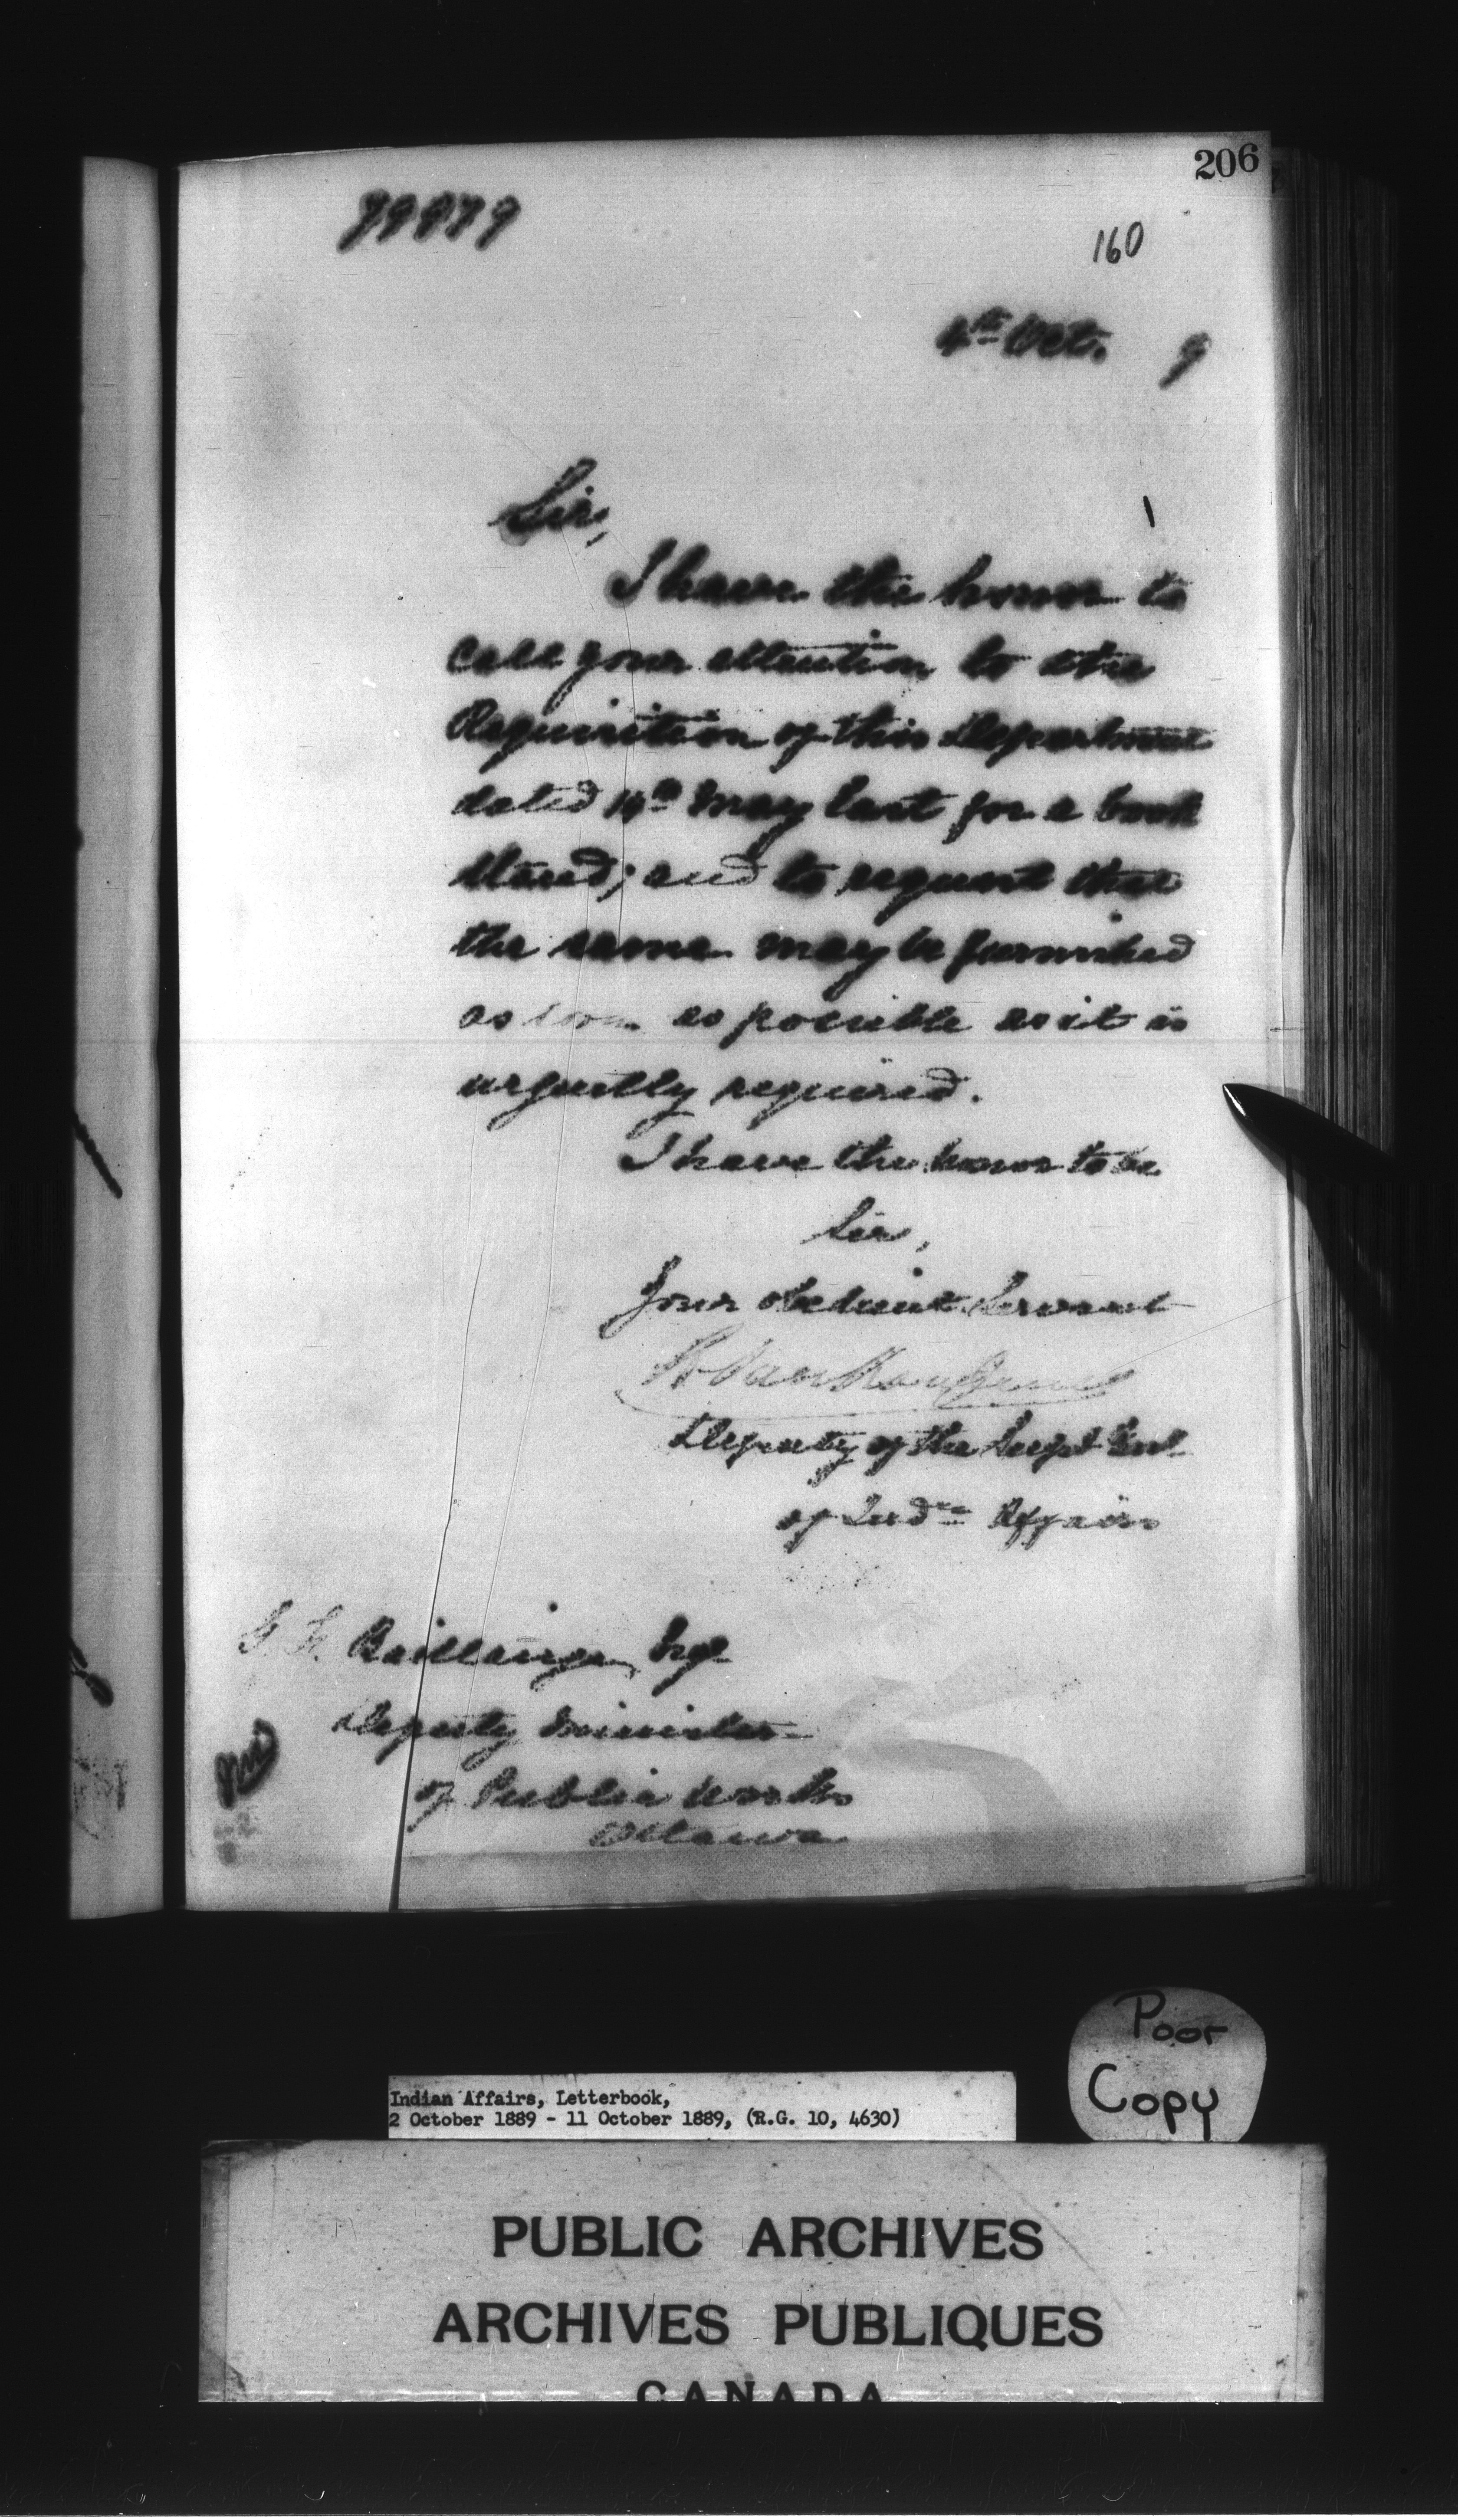 206
160
4th Oct. 9
Sir,
I have the honor to
call your attention to the
Requisition of this Department
dated 14th May last for a book
stand; and to request that
the same may be furnished
as soon as possible as it is
urgently required.
I have the honor to be
Sir,
Your obedient Servant
L. VanKoughnet
Deputy of the Supt Genl
of Indn Affairs
G. F. Baillairgé, Esq
Deputy Minister
of Public Works
Ottawa
Poor
Copy
Indian Affairs, Letterbook,
2 October 1889 - 11 October 1889, (R.G. 10, 4630)
PUBLIC ARCHIVES
ARCHIVES PUBLIQUES
CANADA